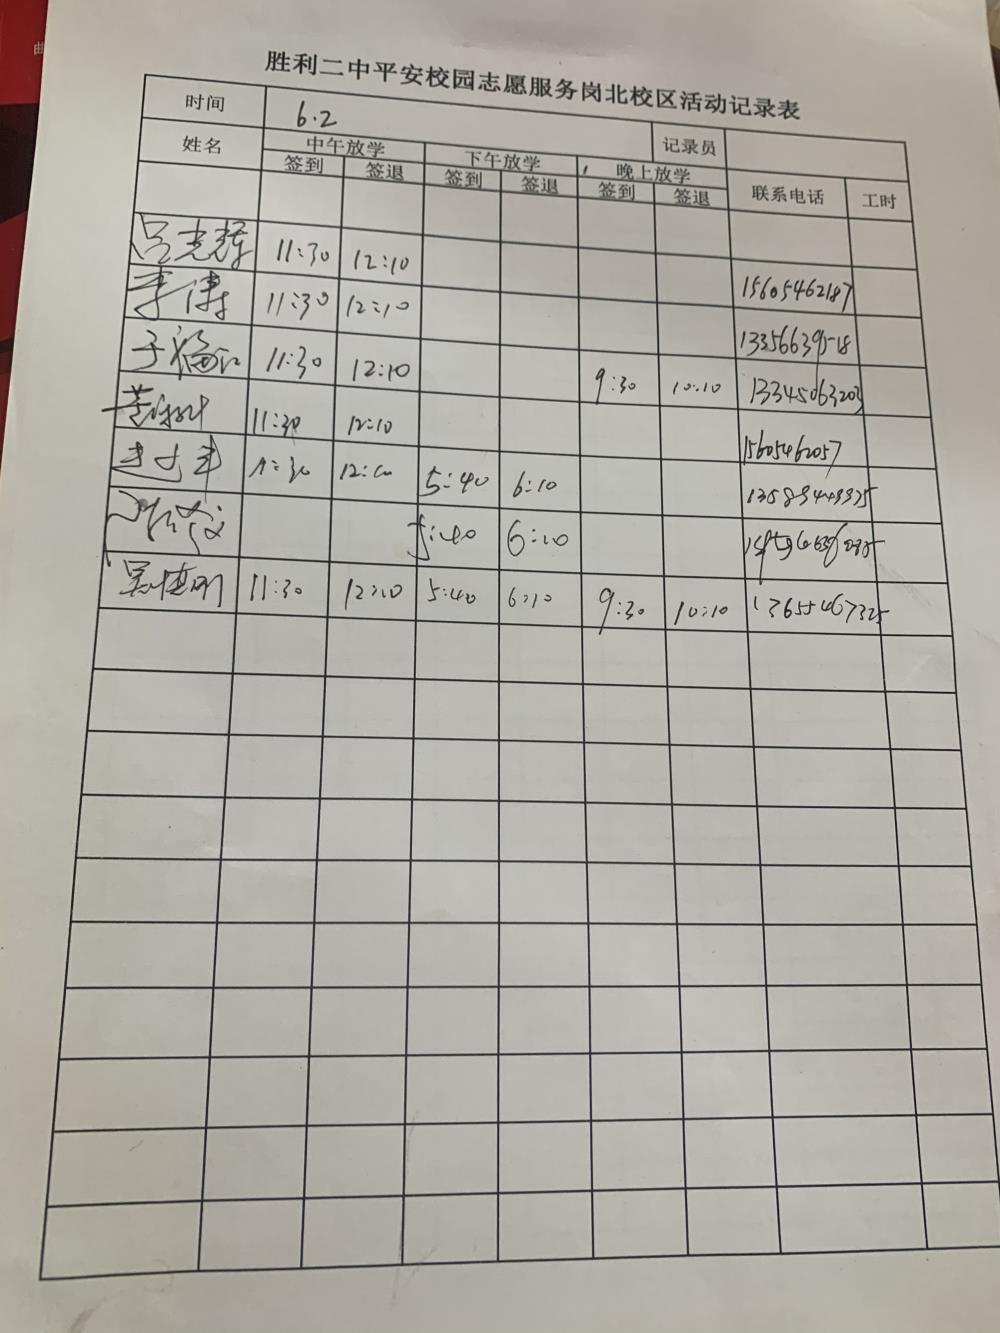 胜利二中平安校园志愿服务岗北校区活动记录表
时间 6.2 记录员
姓名 中午放学 下午放学 晚上放学 联系电话 工时
签到 签退 签到 签退 签到 签退
吕光辉 11:30 12:10 15605462187
李涛 11:30 12:10 13356639518
于福江 11:30 12:10 9:30 10:10 13345063203
11:30 12:10 15605462057
11:30 12:10 5:40 6:10
5:40 6:10
吴德明 11:30 12:10 5:40 6:10 9:30 10:10 13655467325